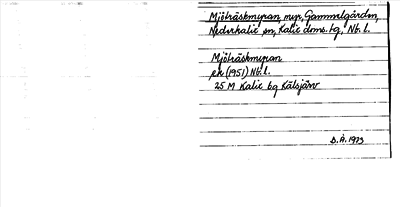 Mjöträskmyran, myr, Gammelgården,
Nederkalix sn, Kalix doms. tg, Nb. l.
Mjöträskmyran
ek (1951) Nb. l.
25 M Kalix bg Kälsjärv
D.Å. 1973